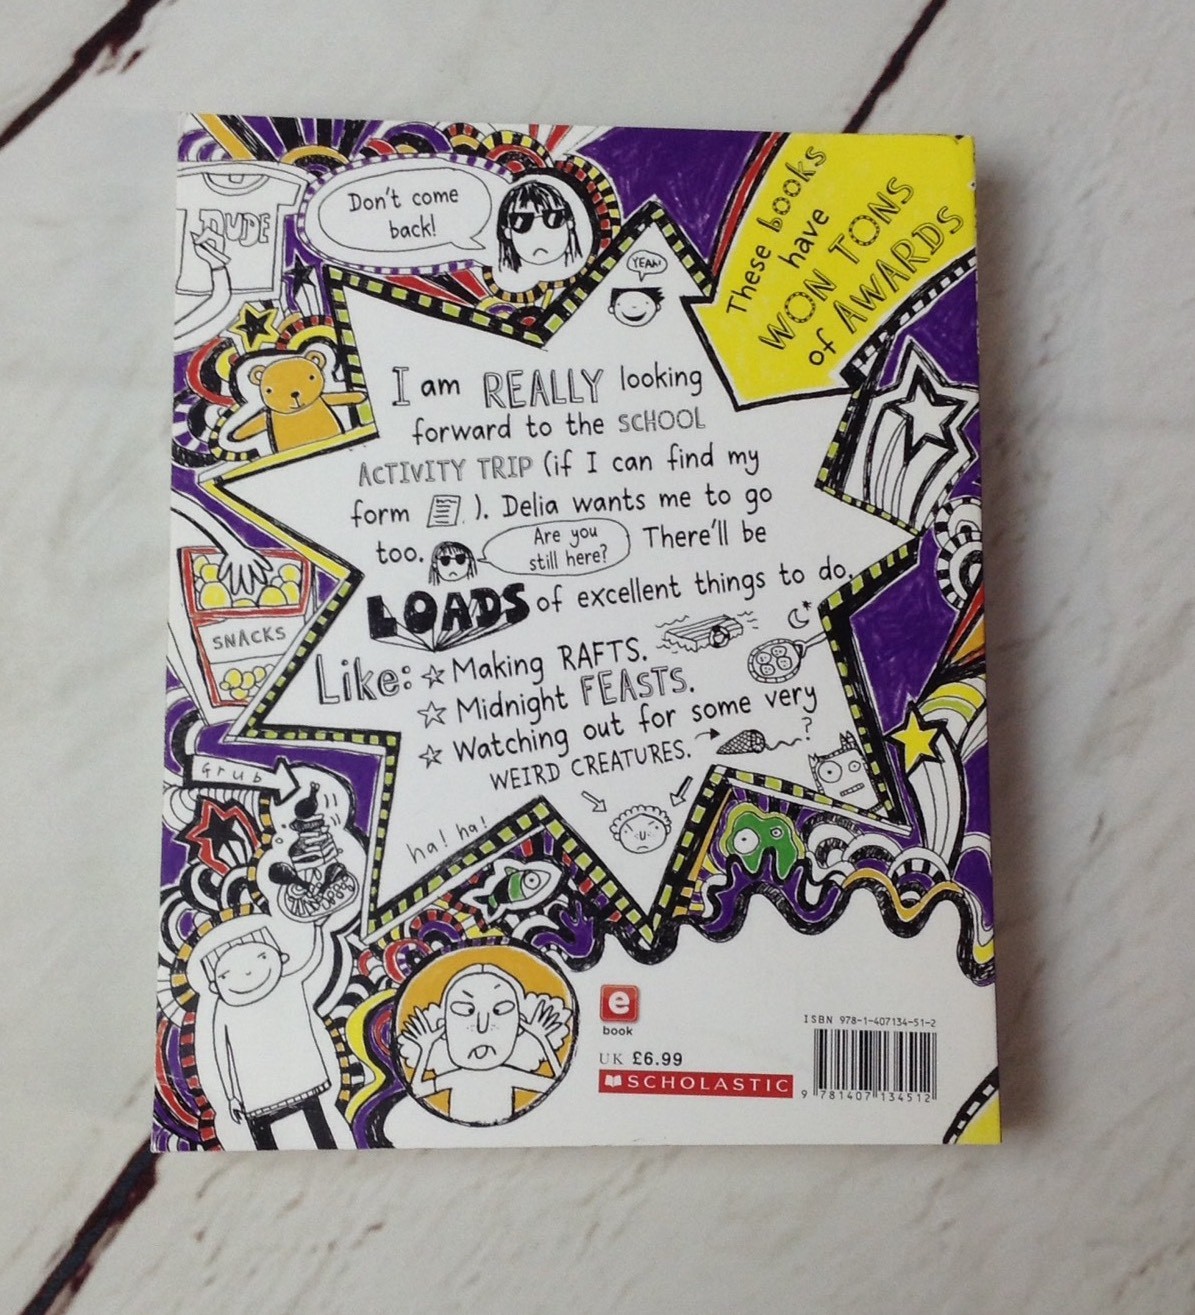 DUDE
Don't come
back!
These books
have
WON TONS
of AWARDS
YEAH!
I am REALLY looking
forward to the SCHOOL
ACTIVITY TRIP (if I can find my
form ). Delia wants me to go
too. Are you
still here? There'll be
LOADS of excellent things to do.
Like: Making RAFTS.
Midnight FEASTS.
Watching out for some very
WEIRD CREATURES. ?
SNACKS
Grub
ha! ha!
e
book
UK £6.99
SCHOLASTIC
ISBN 978-1-407134-51-2
9 781407 134512